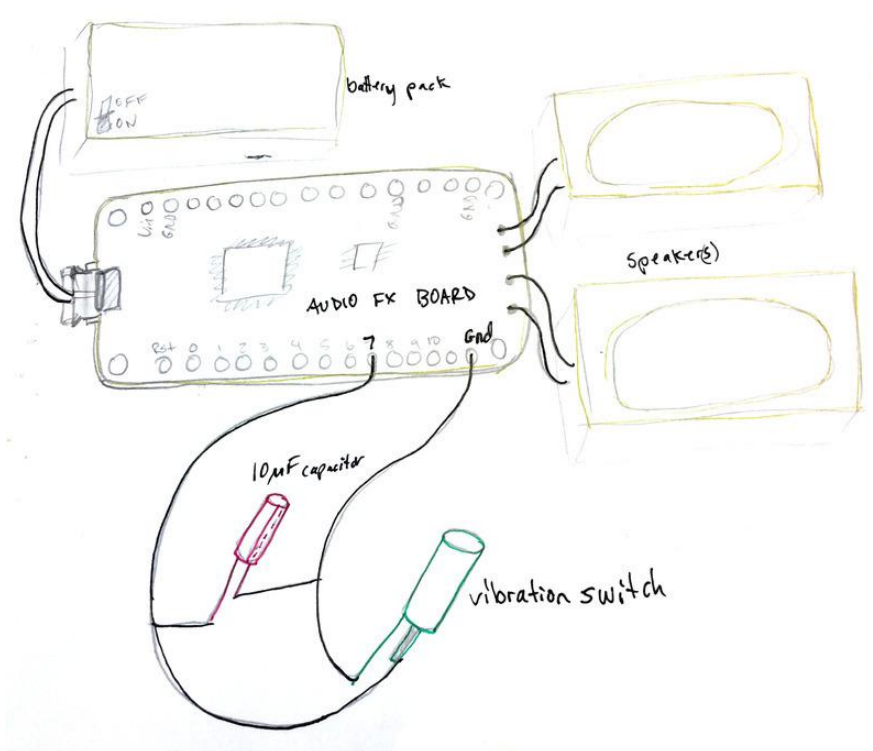 battery pack
OFF
ON
Vin GND GND GND
Speaker(s)
AUDIO FX BOARD
Rst 0 1 2 3 4 5 6 7 8 9 10 Gnd
10µF capacitor
vibration switch